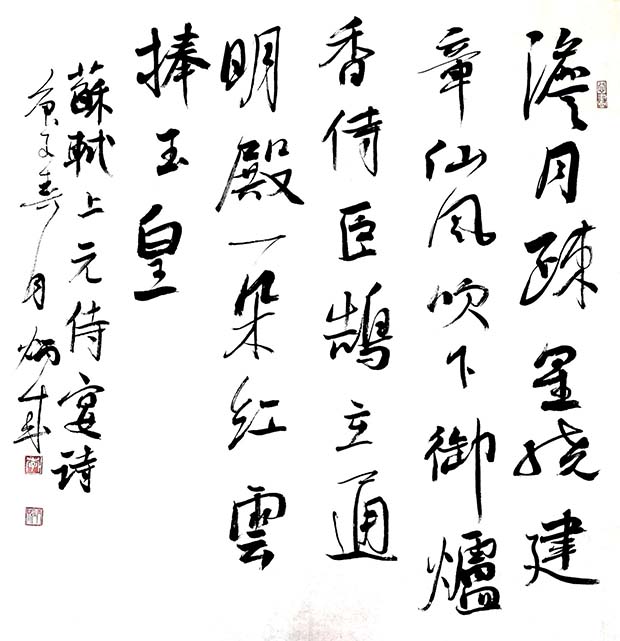 澹月疎星绕建
章仙风吹下御爐
香侍臣鵠立通
明殿一朵红雲
捧玉皇
蘇軾上元侍宴诗
庚子春月炳成